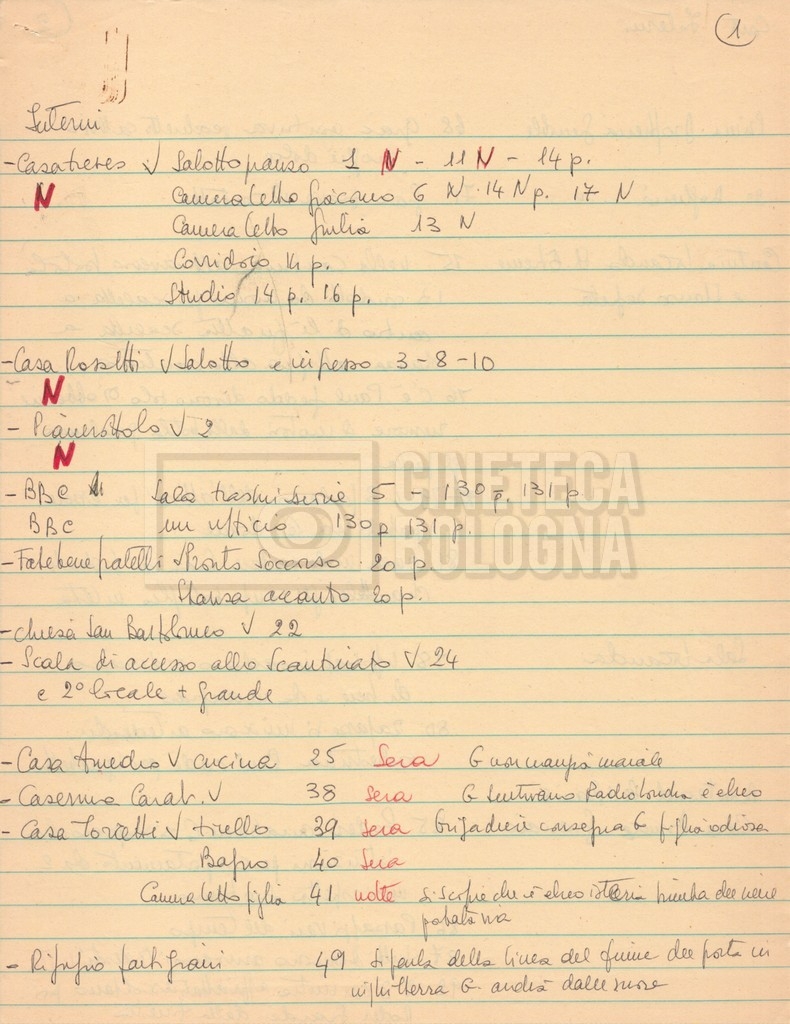 1
Interni
- Casa Ceres √ Salotto pranzo 1 N - 11 N - 14 p.
N Camera letto Giacomo 6 N - 14 N p. 17 N
Camera letto Giulia 13 N
Corridoio 14 p.
Studio 14 p. 16 p.
- Casa Rossetti √ Salotto e ingresso 3-8-10
N
- Pianerottolo √ 2
N
- BBC Sala trasmissione 5 - 130 p. 131 p
BBC un ufficio 130 p 131 p.
- Fatebenefratelli √ Pronto Soccorso 20 p.
Stanza accanto 20 p.
- chiesa San Bartolomeo √ 22
- Scala di accesso allo Scantinato √ 24
e 2° locale + grande
- Casa Amedeo √ cucina 25 Sera G non mangia maiale
- Caserma Carab. √ 38 sera G Sentivano Radio Londra è ebreo
- Casa √ tinello 39 sera Brigadiere consegna G figlia odiosa
Bagno 40 Sera
Camera letto figlia 41 notte si scopre che è ebreo isteria bimba che viene
- Rifugio partigiani 49 si parla della linea del fiume che porta in
inghilterra G. andrà dalle suore
CINETECA
BOLOGNA